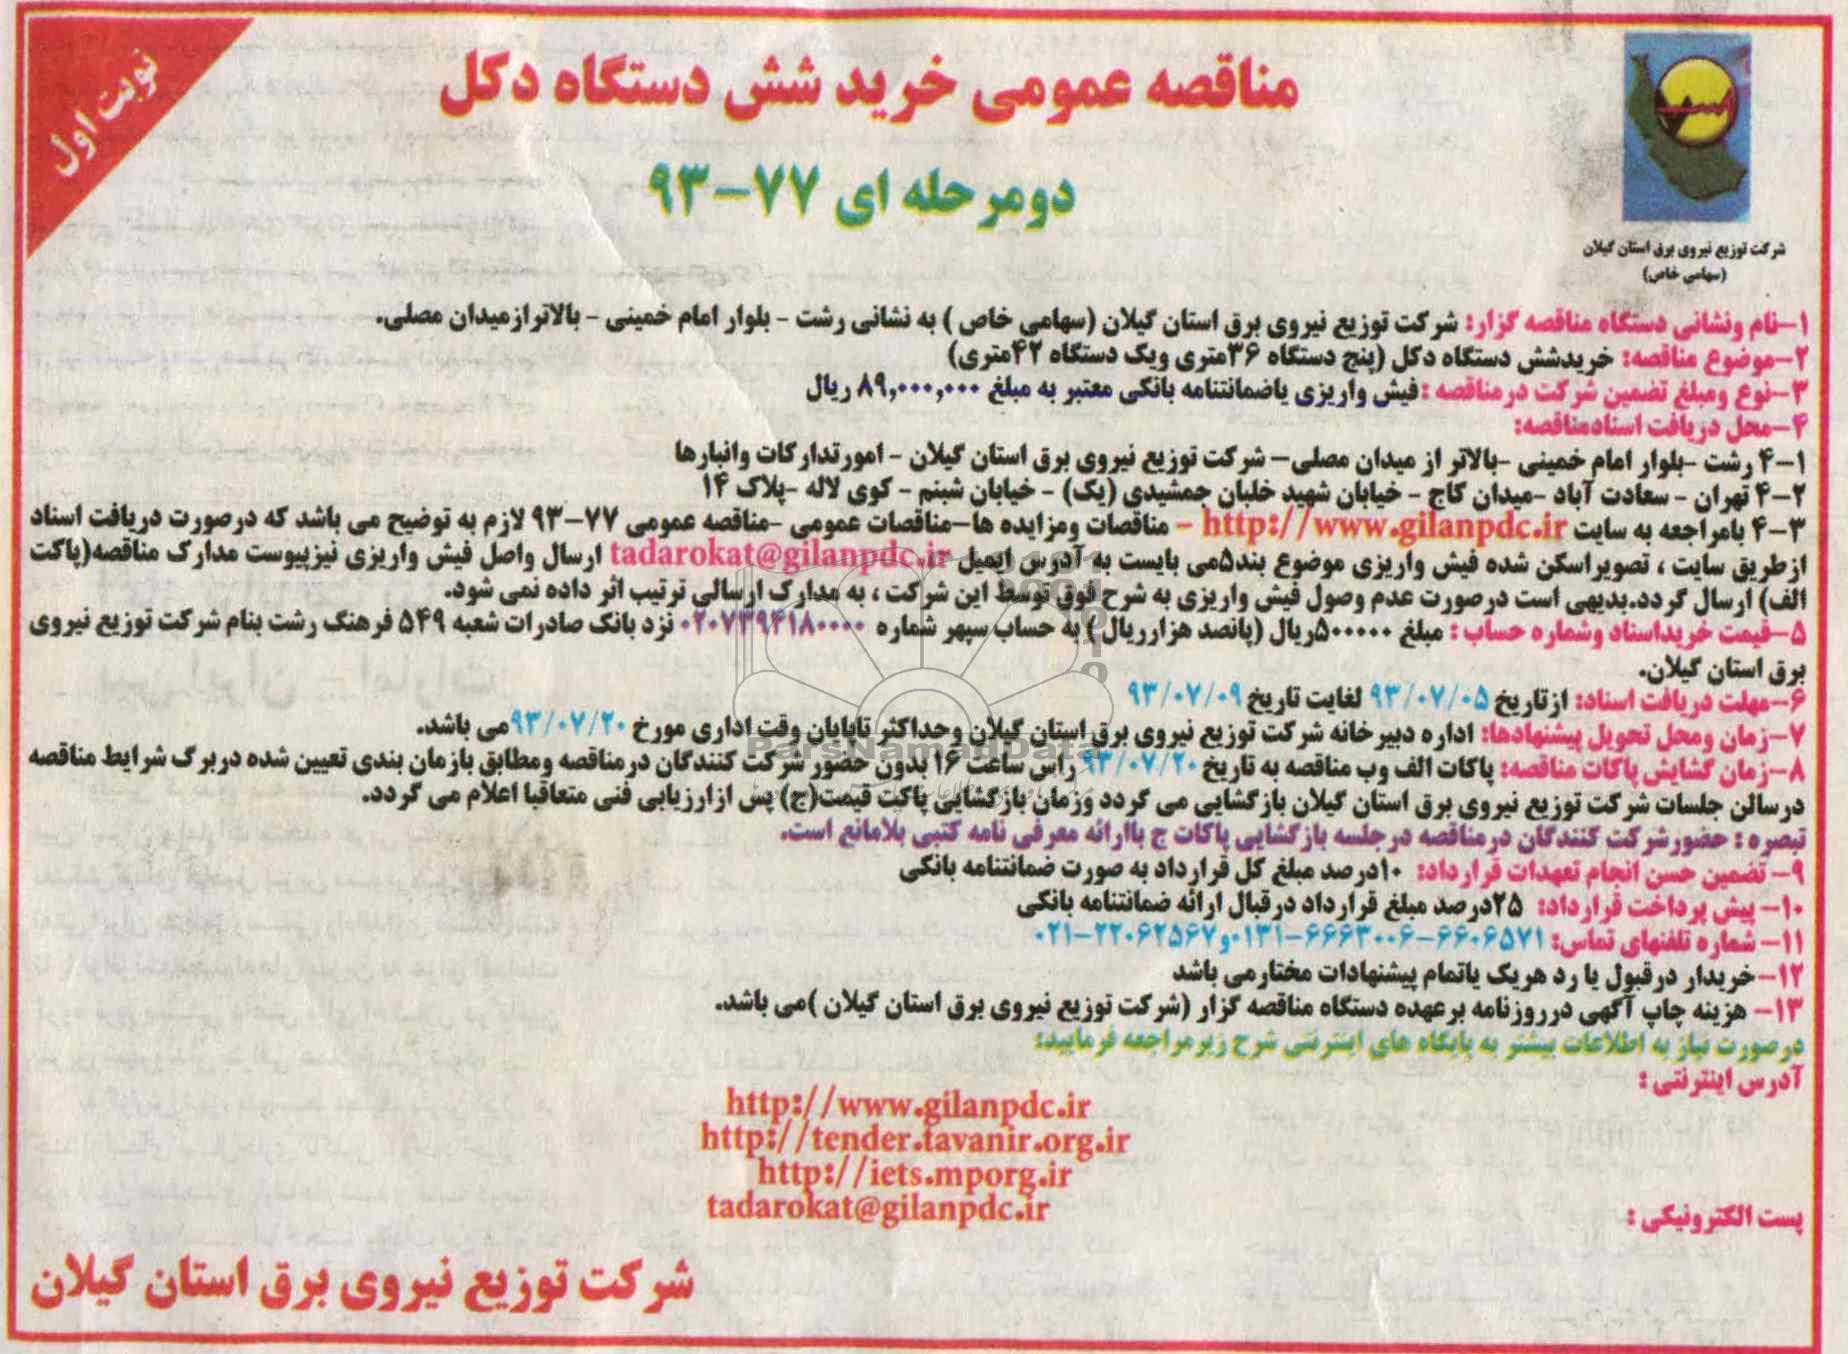 نوبت اول
مناقصه عمومی خرید شش دستگاه دکل
دومرحله ای ۷۷-۹۳
شرکت توزیع نیروی برق استان گیلان
(سهامی خاص)
۱-نام ونشانی دستگاه مناقصه گزار: شرکت توزیع نیروی برق استان گیلان (سهامی خاص ) به نشانی رشت - بلوار امام خمینی - بالاترازمیدان مصلی.
۲-موضوع مناقصه: خریدشش دستگاه دکل (پنج دستگاه ۳۶متری ویک دستگاه ۴۲متری)
۳-نوع ومبلغ تضمین شرکت درمناقصه :فیش واریزی یاضمانتنامه بانکی معتبر به مبلغ ۸۹,۰۰۰,۰۰۰ ریال
۴-محل دریافت اسنادمناقصه:
۴-۱ رشت -بلوار امام خمینی -بالاتر از میدان مصلی- شرکت توزیع نیروی برق استان گیلان - امورتدارکات وانبارها
۴-۲ تهران - سعادت آباد -میدان کاج - خیابان شهید خلبان جمشیدی (یک) - خیابان شبنم - کوی لاله -پلاک ۱۴
۴-۳ بامراجعه به سایت http://www.gilanpdc.ir - مناقصات ومزایده ها-مناقصات عمومی -مناقصه عمومی ۷۷-۹۳ لازم به توضیح می باشد که درصورت دریافت اسناد
ازطریق سایت ، تصویراسکن شده فیش واریزی موضوع بند۵می بایست به آدرس ایمیل tadarokat@gilanpdc.ir ارسال واصل فیش واریزی نیزپیوست مدارک مناقصه(پاکت
الف) ارسال گردد.بدیهی است درصورت عدم وصول فیش واریزی به شرح فوق توسط این شرکت ، به مدارک ارسالی ترتیب اثر داده نمی شود.
۵-قیمت خریداسناد وشماره حساب : مبلغ ۵۰۰۰۰۰ریال (پانصد هزارریال ) به حساب سپهر شماره ۰۲۰۷۳۹۴۱۸۰۰۰۰ نزد بانک صادرات شعبه ۵۴۹ فرهنگ رشت بنام شرکت توزیع نیروی
برق استان گیلان.
۶-مهلت دریافت اسناد: ازتاریخ ۹۳/۰۷/۰۵ لغایت تاریخ ۹۳/۰۷/۰۹
۷-زمان ومحل تحویل پیشنهادها: اداره دبیرخانه شرکت توزیع نیروی برق استان گیلان وحداکثر تاپایان وقت اداری مورخ ۹۳/۰۷/۲۰می باشد.
ParsNamadData
۸-زمان گشایش پاکات مناقصه: پاکات الف وب مناقصه به تاریخ ۹۳/۰۷/۲۰ راس ساعت ۱۶ بدون حضور شرکت کنندگان درمناقصه ومطابق بازمان بندی تعیین شده دربرگ شرایط مناقصه
درسالن جلسات شرکت توزیع نیروی برق استان گیلان بازگشایی می گردد وزمان بازگشایی پاکت قیمت(ج) پس ازارزیابی فنی متعاقبا اعلام می گردد.
تبصره : حضورشرکت کنندگان درمناقصه درجلسه بازگشایی پاکات ج باارائه معرفی نامه کتبی بلامانع است.
۹- تضمین حسن انجام تعهدات قرارداد: ۱۰درصد مبلغ کل قرارداد به صورت ضمانتنامه بانکی
۱۰- پیش پرداخت قرارداد: ۲۵درصد مبلغ قرارداد درقبال ارائه ضمانتنامه بانکی
۱۱- شماره تلفنهای تماس: ۶۶۰۶۵۷۱-۶۶۶۳۰۰۶-۰۱۳۱و۲۲۰۶۲۵۶۷-۰۲۱
۱۲-خریدار درقبول یا رد هریک یاتمام پیشنهادات مختارمی باشد
۱۳- هزینه چاپ آگهی درروزنامه برعهده دستگاه مناقصه گزار (شرکت توزیع نیروی برق استان گیلان )می باشد.
درصورت نیاز به اطلاعات بیشتر به پایگاه های اینترنتی شرح زیرمراجعه فرمایید:
آدرس اینترنتی :
http://www.gilanpdc.ir
http://tender.tavanir.org.ir
http://iets.mporg.ir
پست الکترونیکی : tadarokat@gilanpdc.ir
شرکت توزیع نیروی برق استان گیلان